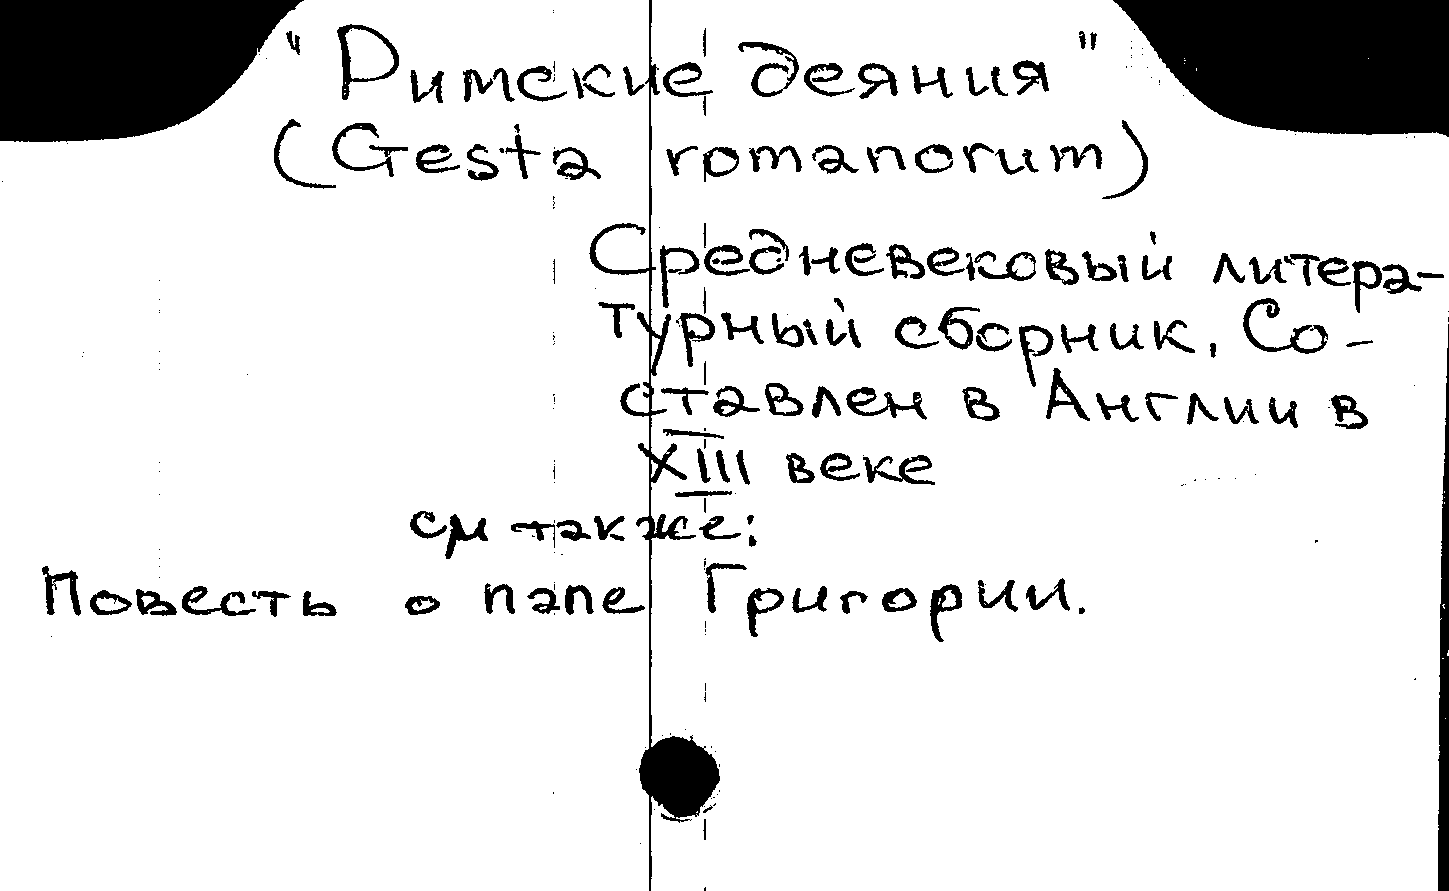 "Римские деяния"
(Gesta romanorum)
Средневековый литера-
турный сборник. Со-
ставлен в Англии в
XIII веке
см также:
Повесть о папе Григории.